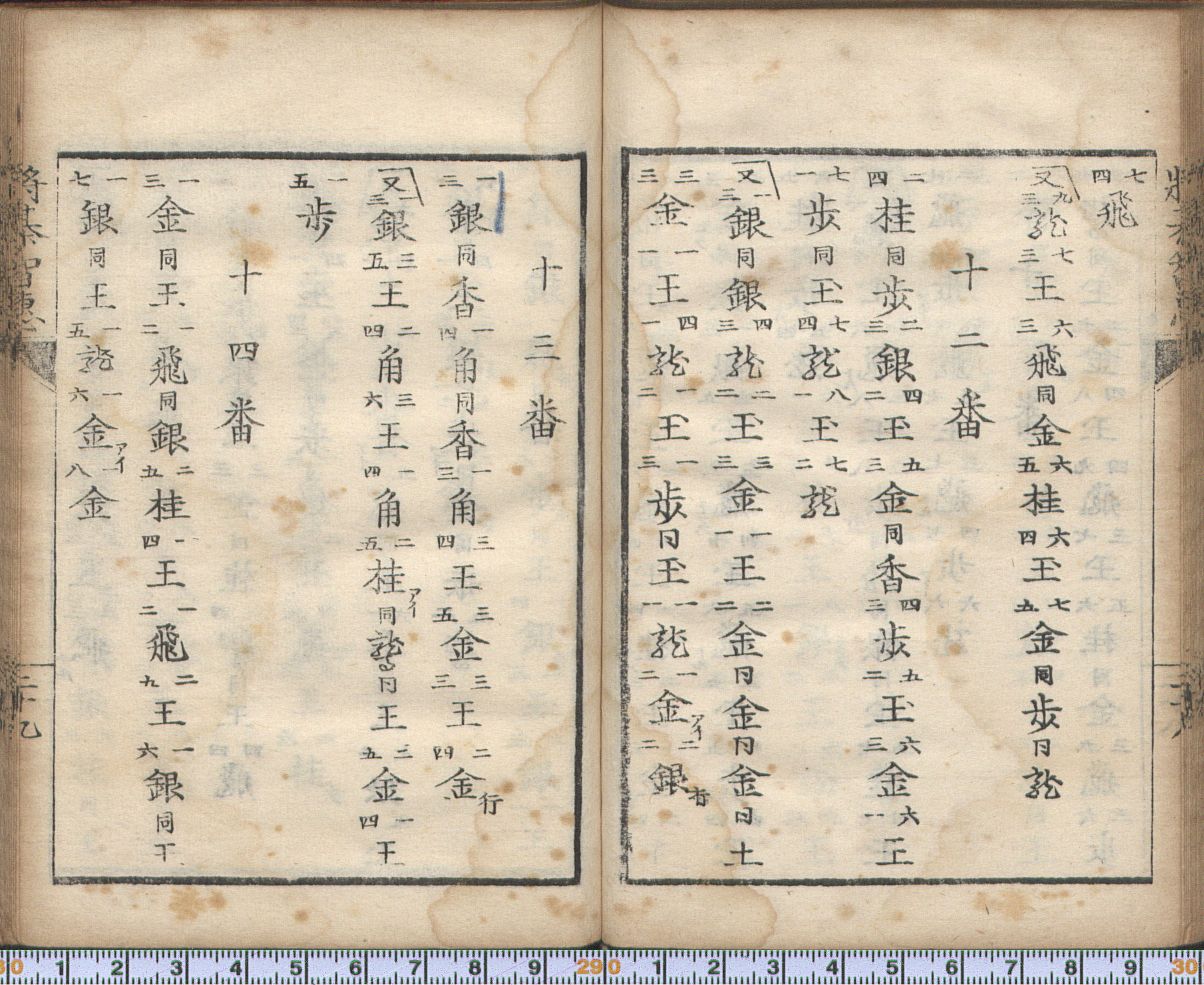 七四飛
又九三龍七三王六三飛同金六五桂六四王七五金同歩日龍
十二番
二四桂同歩二三銀四二王五三金同香四三歩五二王六三金六一王
七一歩同王七四龍八一王七二龍
又一三銀同銀四三龍二二王三三金一一王二二金日金日金日王
三三金一一王四一龍一二王一三歩日王一一龍一二金アイ二二銀
十三番
一三銀同香一四角同香一三角三四王三五金三三王二四金行
又一三銀三五王二四角三六王一四角二五桂アイ同龍日王三五金一四王
一五歩
十四番
一三金同王一二飛同銀二五桂一四王一二飛二九王一六銀同王
一七銀同王一五龍一六金アイ一八金
二十九